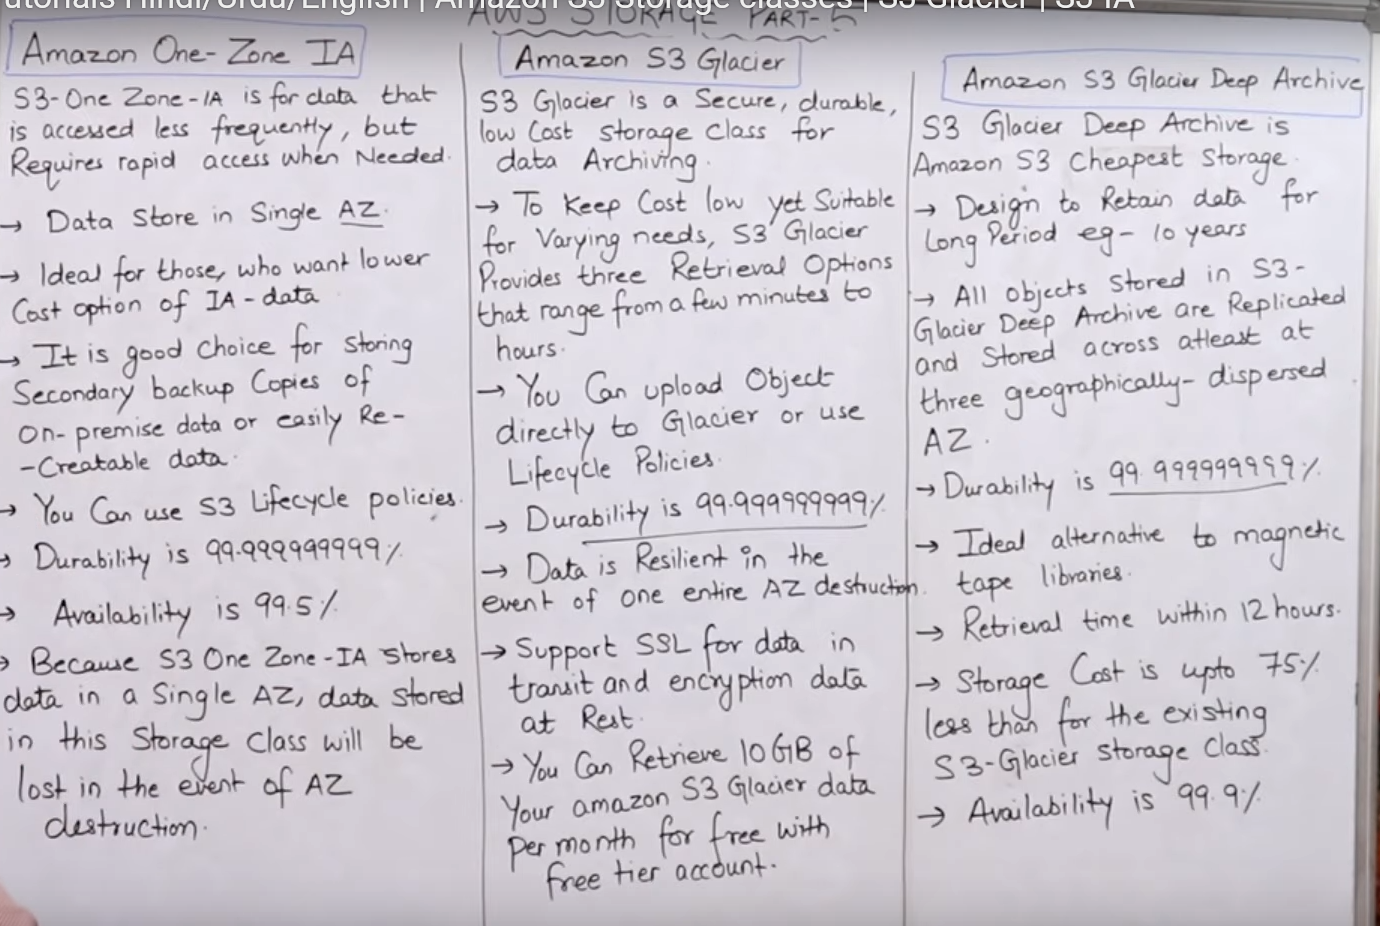 utorials Hindi/Urdu/English | Amazon S3 Storage classes | S3 Glacier | S3 IA
AWS STORAGE PART-5
Amazon One-Zone IA
S3-One Zone-IA is for data that
is accessed less frequently, but
Requires rapid access when Needed.
→ Data Store in Single AZ.
→ Ideal for those, who want lower
Cost option of IA-data
→ It is good choice for storing
Secondary backup Copies of
on-premise data or easily Re-
-Creatable data.
→ You Can use S3 Lifecycle policies.
→ Durability is 99.999999999%
→ Availability is 99.5%
→ Because S3 One Zone-IA stores
data in a Single AZ, data stored
in this Storage class will be
lost in the event of AZ
destruction.
Amazon S3 Glacier
S3 Glacier is a Secure, durable,
low Cost storage Class for
data Archiving.
→ To Keep Cost low yet Suitable
for Varying needs, S3 Glacier
Provides three Retrieval Options
that range from a few minutes to
hours.
→ You Can upload Object
directly to Glacier or use
Lifecycle Policies.
→ Durability is 99.999999999%
→ Data is Resilient in the
event of one entire AZ destruction.
→ Support SSL for data in
transit and encryption data
at Rest.
→ You Can Retrieve 10GB of
Your amazon S3 Glacier data
Per month for free with
free tier account.
Amazon S3 Glacier Deep Archive
S3 Glacier Deep Archive is
Amazon S3 Cheapest Storage.
→ Design to Retain data for
Long Period eg- 10 years
→ All objects stored in S3-
Glacier Deep Archive are Replicated
and Stored across atleast at
three geographically-dispersed
AZ.
→ Durability is 99.999999999%
→ Ideal alternative to magnetic
tape libraries.
→ Retrieval time within 12 hours.
→ Storage Cost is upto 75%
less than for the existing
S3-Glacier storage Class.
→ Availability is 99.9%